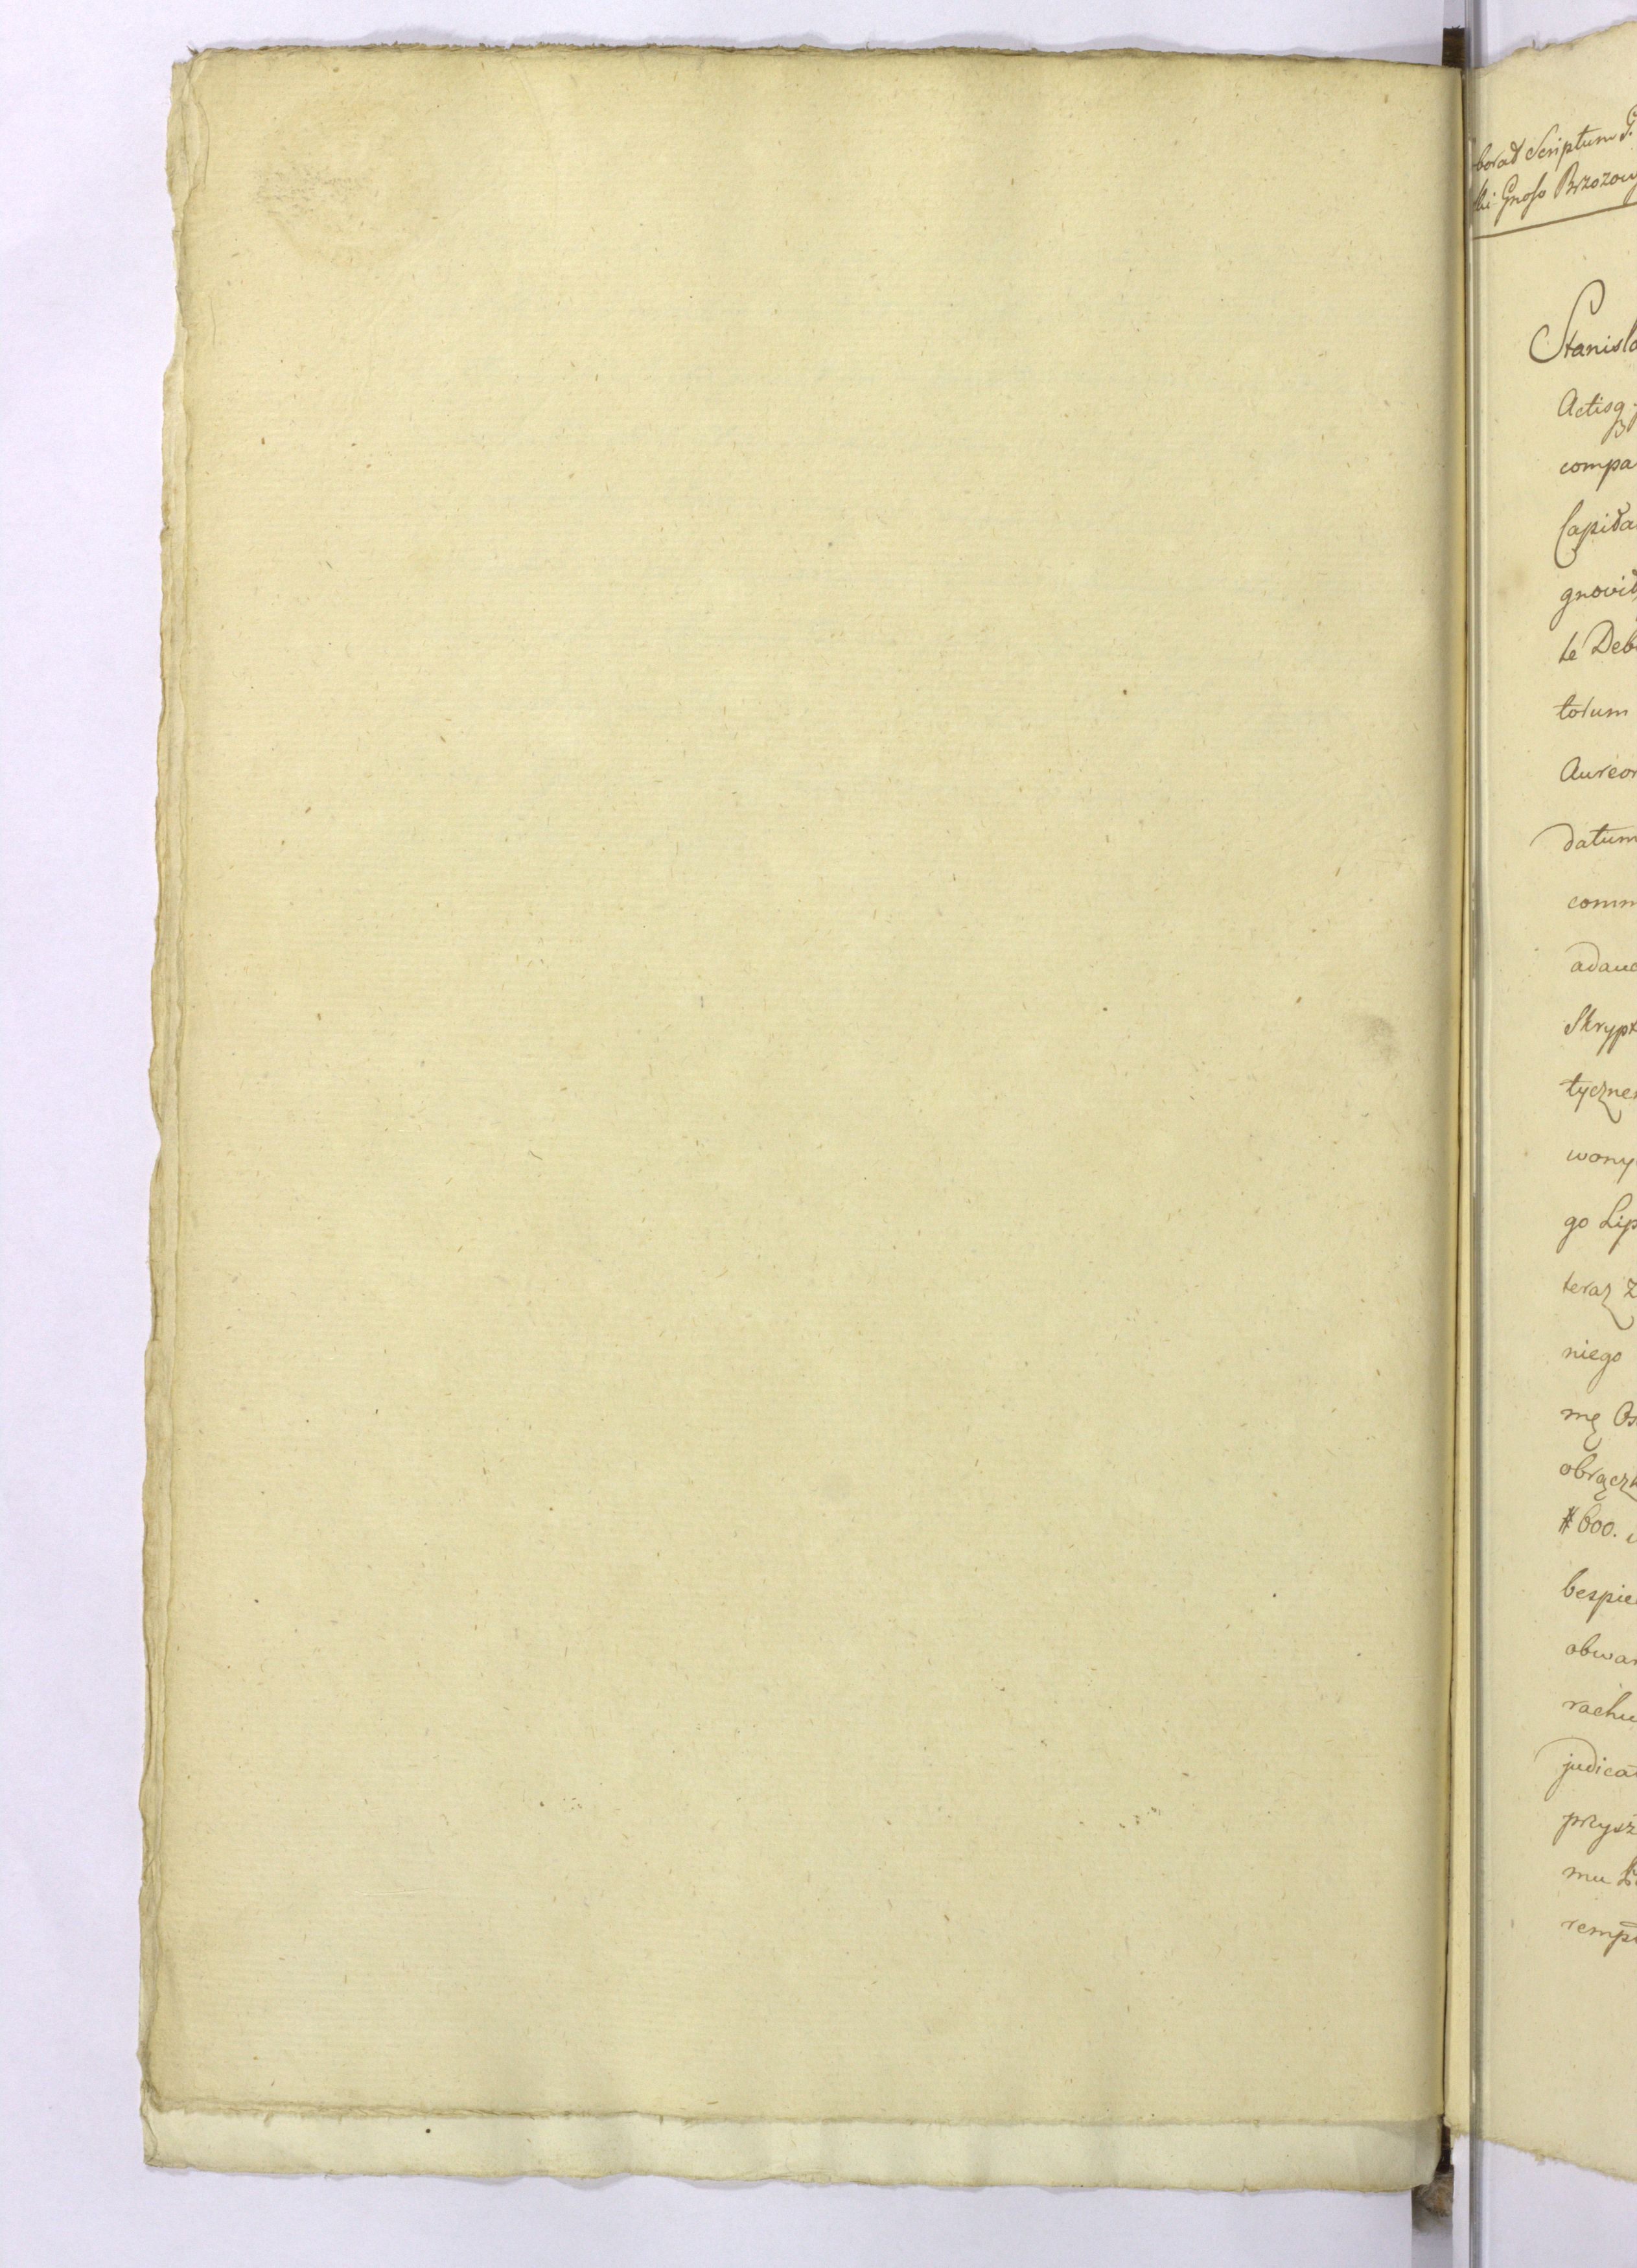 borat Scriptum G.
ski Gnoso Brzozow
Stanisla
Actisq
compa
Capita
gnovit
te Deb
torum
Aureor
datum
comm
adauc
Skrypt
tyczne
wony
go Lip
teraz z
niego
mę Os
obrączk
# 600.
bespie
obwar
rachu
judica
przysz
mu
rempt